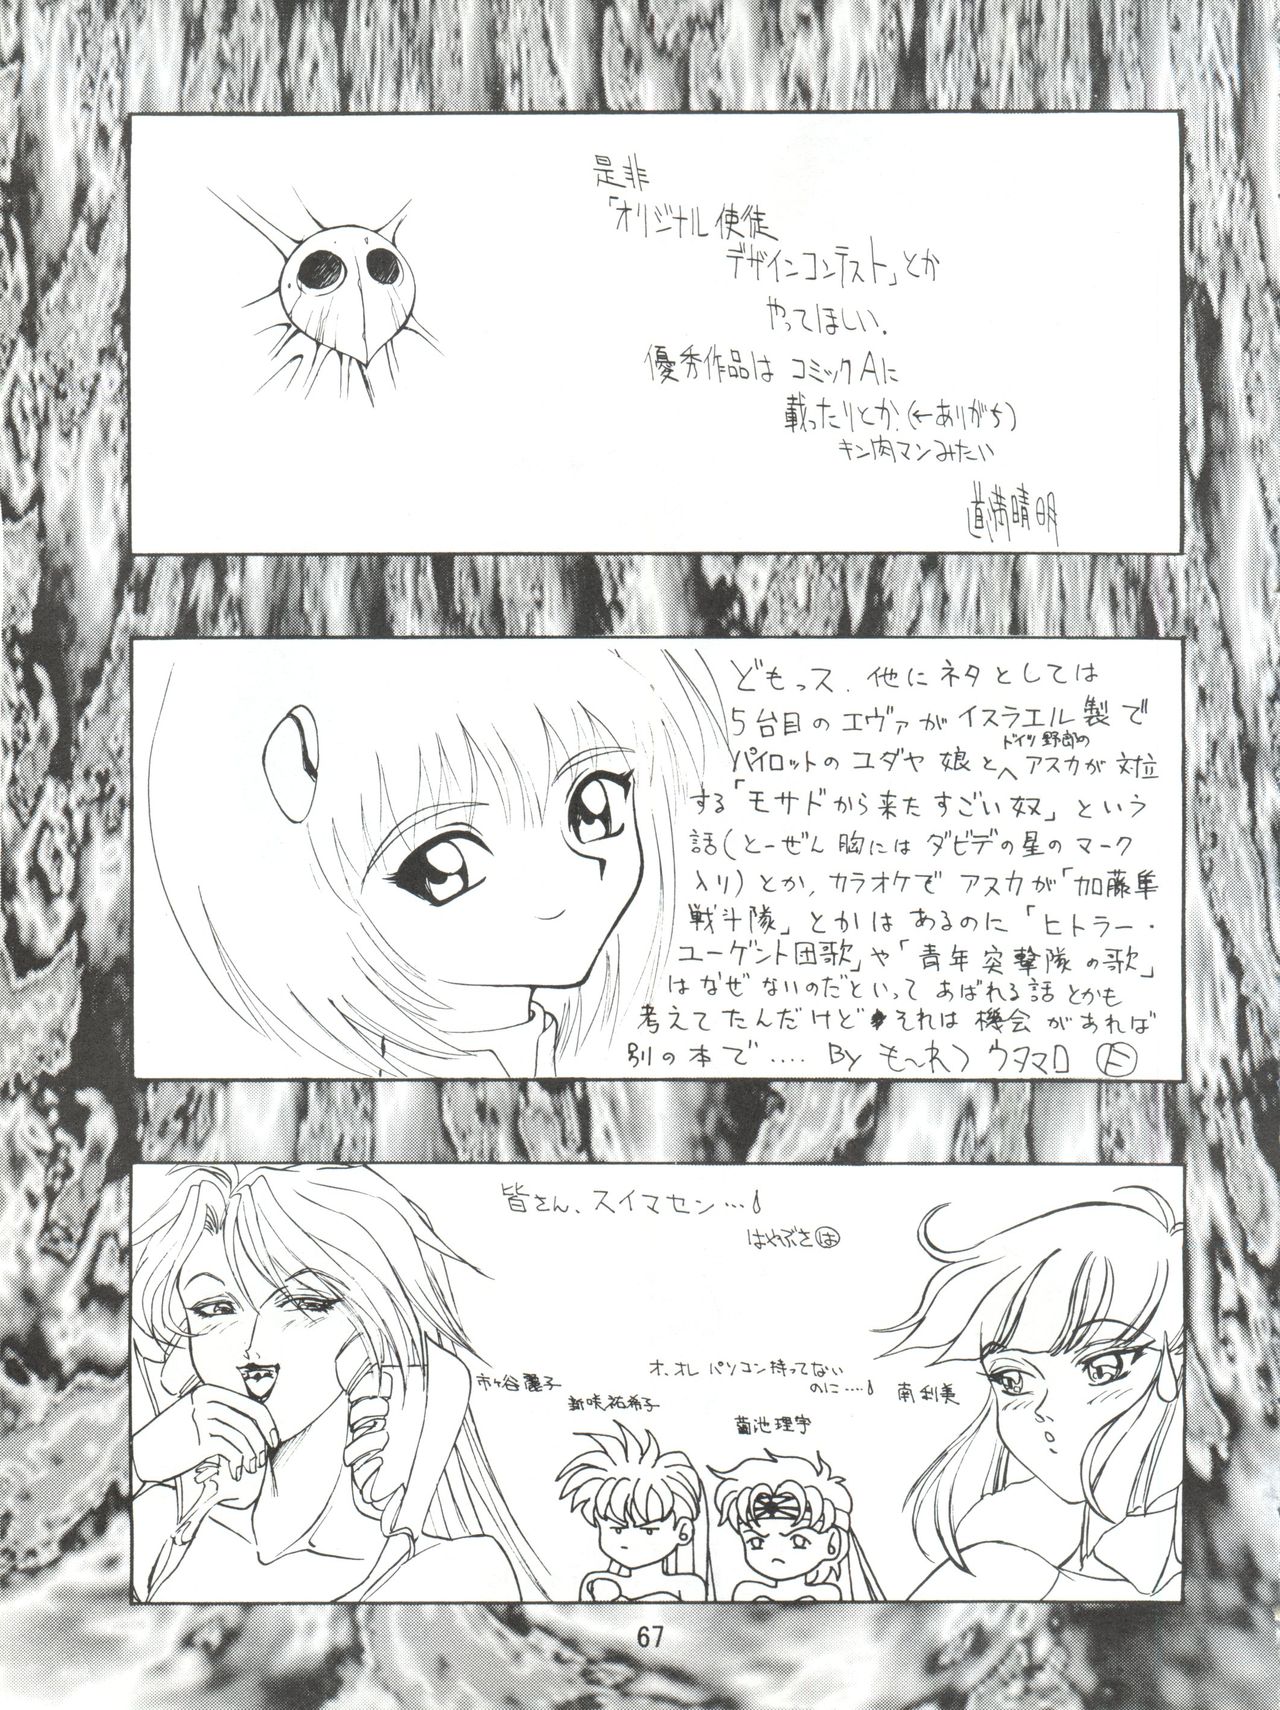 是非
「オリジナル使徒
デザインコンテスト」とか
やってほしい.
優秀作品は コミックAに
載ったりとか.(←ありがち)
キン肉マンみたい
道満晴明
どもっス. 他にネタとしては
5台目のエヴァがイスラエル製で
パイロットのユダヤ娘とドイツ野郎のアスカが対立
する「モサドから来たすごい奴」という
話(とーぜん胸にはダビデの星のマーク
入り)とか,カラオケでアスカが「加藤隼
戦斗隊」とかはあるのに「ヒトラー・
ユーゲント団歌」や「青年突撃隊の歌」
はなぜないのだといってあばれる話とかも
考えてたんだけど それは機会があれば
別の本で.... By も〜れつウタマロ
皆さん、スイマセン…
はやぶさ は
オ、オレ パソコン持ってない
のに…
市ヶ谷麗子
新咲祐希子
菊池理宇
南利美
67